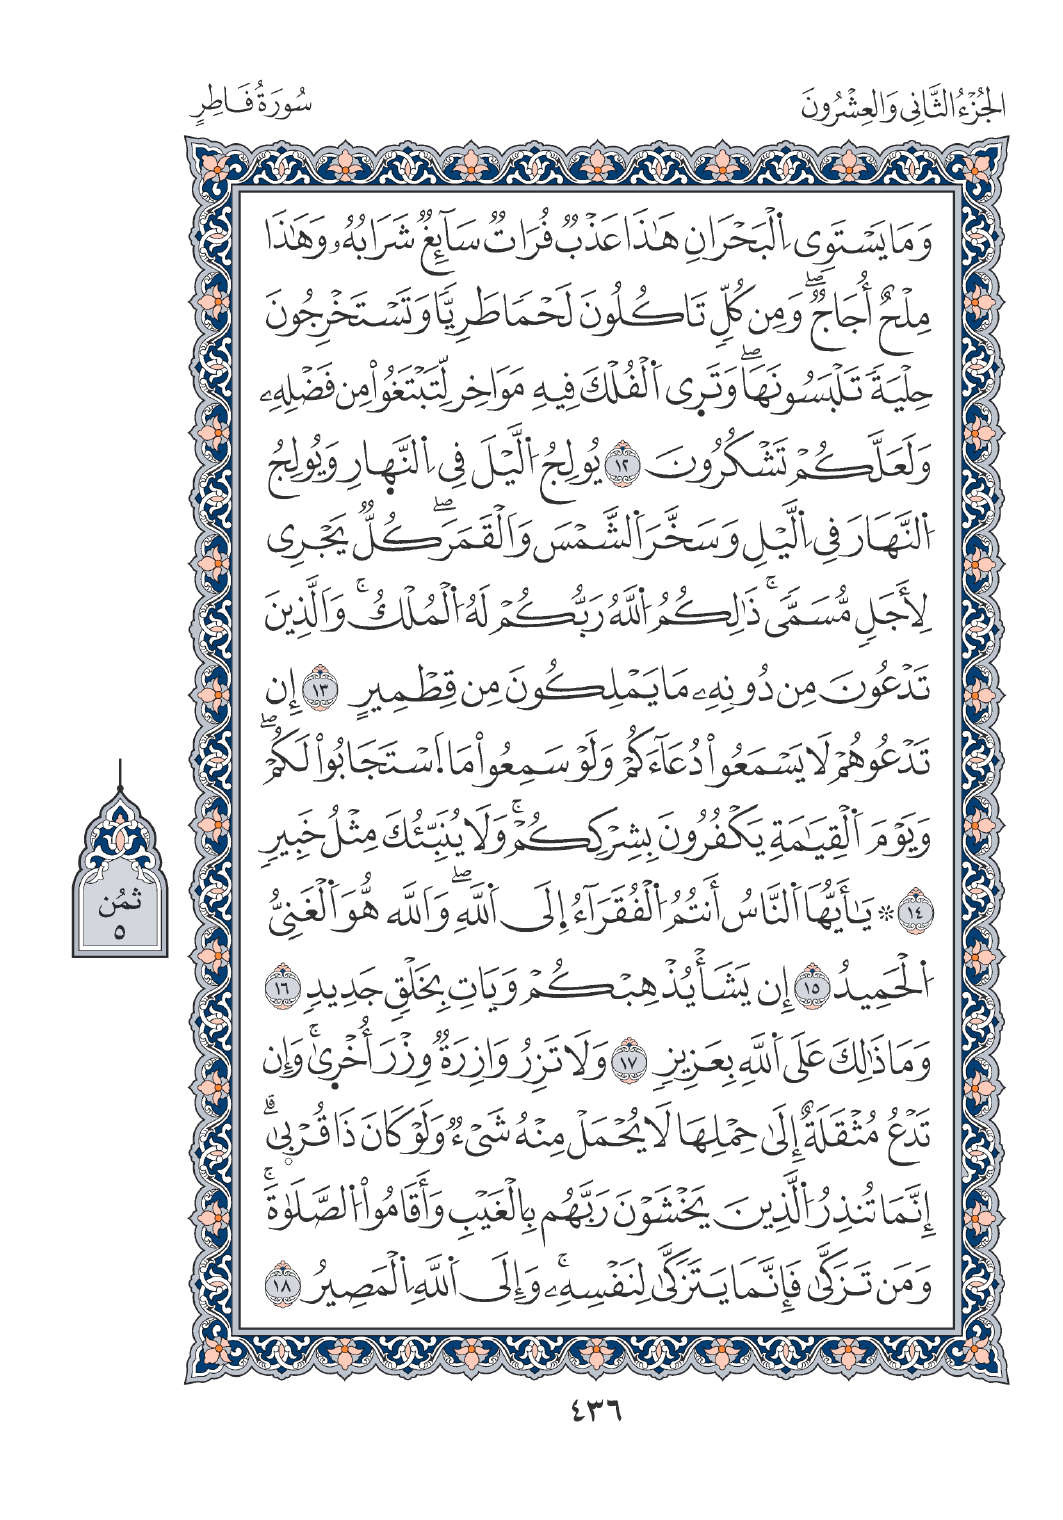 الجُزْءُ الثَّانِي وَالعِشْرُونَ
سُورَةُ فَاطِرٍ
وَمَا يَسْتَوِى اِ۬لْبَحْرَانِ هَٰذَا عَذْبٞ فُرَاتٞ سَآئِغٞ شَرَابُهُۥ وَهَٰذَا
مِلْحٌ أُجَاجٞۖ وَمِن كُلّٖ تَاكُلُونَ لَحْماٗ طَرِيّاٗ وَتَسْتَخْرِجُونَ
حِلْيَةٗ تَلْبَسُونَهَاۖ وَتَرَى اَ۬لْفُلْكَ فِيهِ مَوَاخِرَ لِتَبْتَغُواْ مِن فَضْلِهِۦ
وَلَعَلَّكُمْ تَشْكُرُونَ ١٢ يُولِجُ اُ۬لَّيْلَ فِى اِ۬لنَّهارِ وَيُولِجُ
اُ۬لنَّهَارَ فِى اِ۬لَّيْلِ وَسَخَّرَ اَ۬لشَّمْسَ وَالْقَمَرَۖ كُلّٞ يَجْرِى
لِأَجَلٖ مُّسَمّىٗۚ ذَٰلِكُمُ اُ۬للَّهُ رَبُّكُمْ لَهُ اُ۬لْمُلْكُۚ وَالَّذِينَ
تَدْعُونَ مِن دُونِهِۦ مَا يَمْلِكُونَ مِن قِطْمِيرٍ ١٣ إِن
تَدْعُوهُمْ لَا يَسْمَعُواْ دُعَآءَكُمْ وَلَوْ سَمِعُواْ مَا اَ۪سْتَجَابُواْ لَكُمْۖ
وَيَوْمَ اَ۬لْقِيَٰمَةِ يَكْفُرُونَ بِشِرْكِكُمْۚ وَلَا يُنَبِّئُكَ مِثْلُ خَبِيرٖ
١٤ ۞ يَٰأَيُّهَا اَ۬لنَّاسُ أَنتُمُ اُ۬لْفُقَرَآءُ إِلَى اَ۬للَّهِۖ وَاللَّه هُّوَ اَ۬لْغَنِىُّ
اُ۬لْحَمِيدُ ١٥ إِن يَشَأْ يُذْهِبْكُمْ وَيَاتِ بِخَلْقٖ جَدِيدٖ ١٦
وَمَا ذَٰلِكَ عَلَى اَ۬للَّهِ بِعَزِيزٖ ١٧ وَلَا تَزِرُ وَازِرَةٞ وِزْرَ أُخْر۪ىٰۚ وَإِن
تَدْعُ مُثْقَلَةٌ إِلَىٰ حِمْلِهَا لَا يُحْمَلْ مِنْهُ شَىْءٞ وَلَوْ كَانَ ذَا قُرْبىٰۗ
إِنَّمَا تُنذِرُ اُ۬لَّذِينَ يَخْشَوْنَ رَبَّهُم بِالْغَيْبِ وَأَقَامُواْ اُ۬لصَّلَوٰةَۚ
وَمَن تَزَكّىٰ فَإِنَّمَا يَتَزَكّىٰ لِنَفْسِهِۦۚ وَإِلَى اَ۬للَّهِ اِ۬لْمَصِيرُ ١٨
ثمُن
٥
٤٣٦